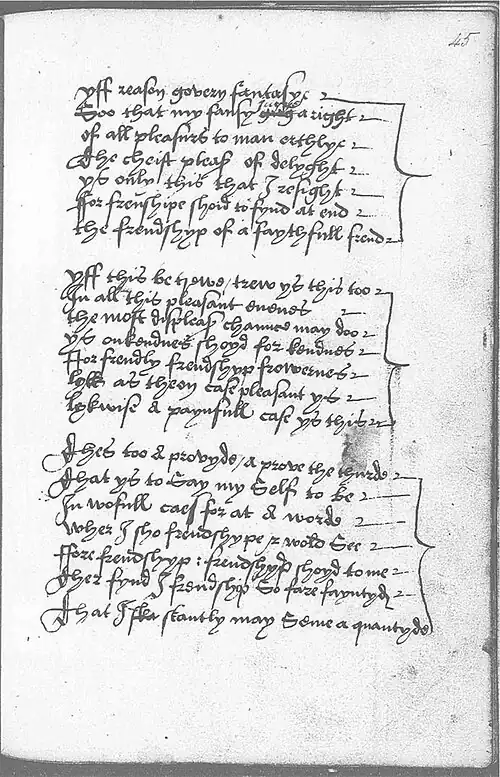 45
yff reason govern fantasye
Soo that my fansy Juge a right
of all pleasurs to man erthlye
The cheiff pleas of delyght
ys only this that I resight
ffor frenshipe shoid to fynd at end
the frendshyp of a faythfull frend
yff this be trewe / trew ys this too
In all this pleasant evenes
the most displeas chaunce may doo
ys onkendnes shoyd for kendnes
ffor frendly frendshyp frowernes
lyk as theon case pleasant ys
lykwise A paynfull case ys this
Thes too A provyde / a prove the thurde
That ys to Say my Self to be
In wofull caes for at A worde
wher I sho frendshype & wold See
ffore frendshyp : frendshypp shoyd to me
Ther fynd I frendshyp So fare fayntyd
That I stantly may Seme a quantyde